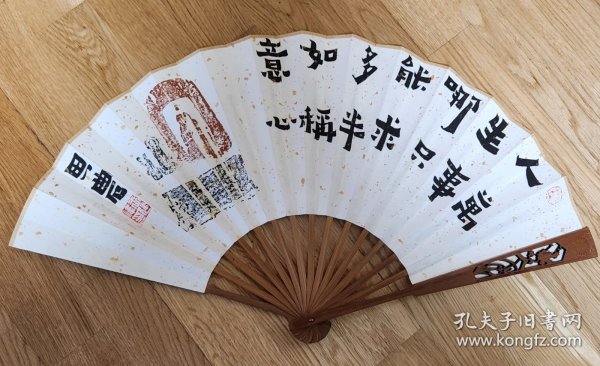 人生哪能多如意
萬事只求半稱心
孔夫子旧书网
www.kongfz.com